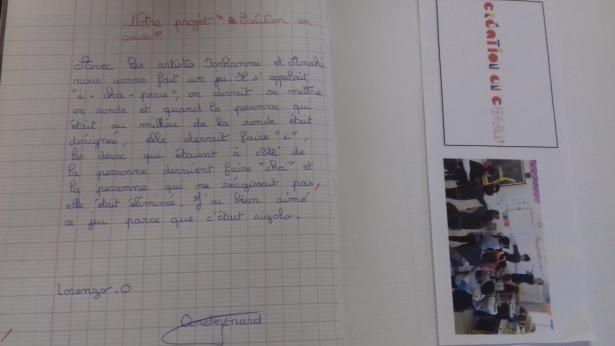 Notre projet "Création en
cours"
Avec les artistes Johanne et Anahi
nous avons fait un jeu, Il s'appelait
"i-cha-peau", on devait se mettre
en ronde et quand la personne qui
était au milieu de la ronde était
designée, elle devrait faire "i",
les deux qui étaient à côté de
la personne devraient faire "cha" et
la personne qui ne réagissait pas,
elle était éliminée. J'ai bien aimé
ce jeu parce que c'était rigolo.
Lorenzo.O
CRÉATION EN COURS